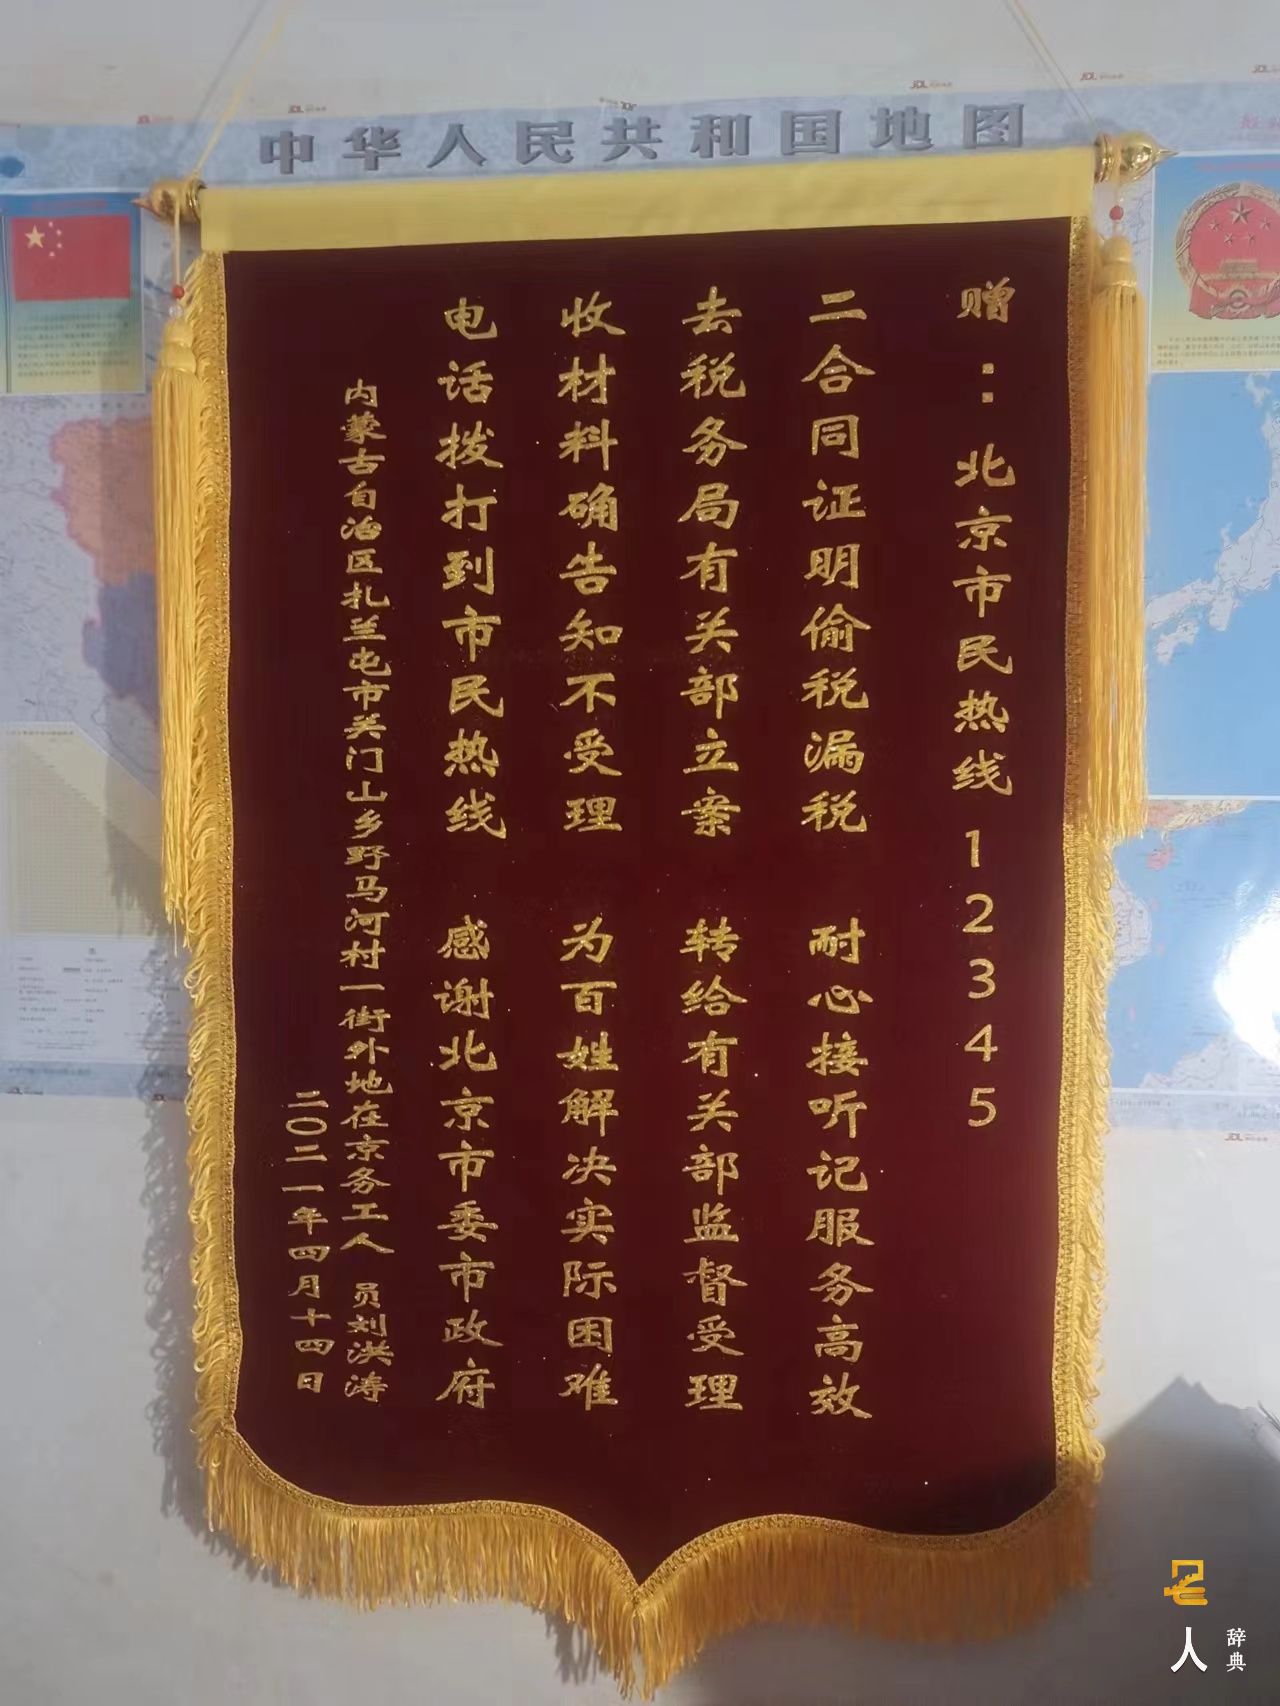 中华人民共和国地图
赠：北京市民热线12345
二合同证明偷税漏税 耐心接听记服务高效
去税务局有关部立案 转给有关部监督受理
收材料确告知不受理 为百姓解决实际困难
电话拨打到市民热线 感谢北京市委市政府
内蒙古自治区扎兰屯市关门山乡野马河村一街外地在京务工人 员刘洪涛
二〇二一年四月十四日
人
辞典